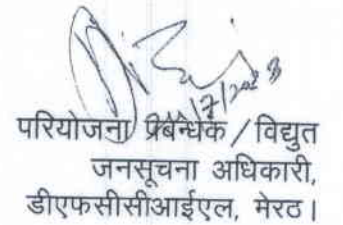 परियोजना प्रबन्धक / विद्युत
जनसूचना अधिकारी,
डीएफसीसीआईएल, मेरठ।